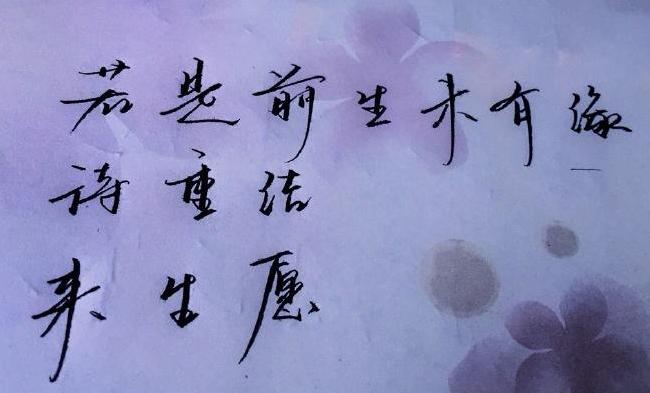 若是前生未有缘
诗重结
来生愿